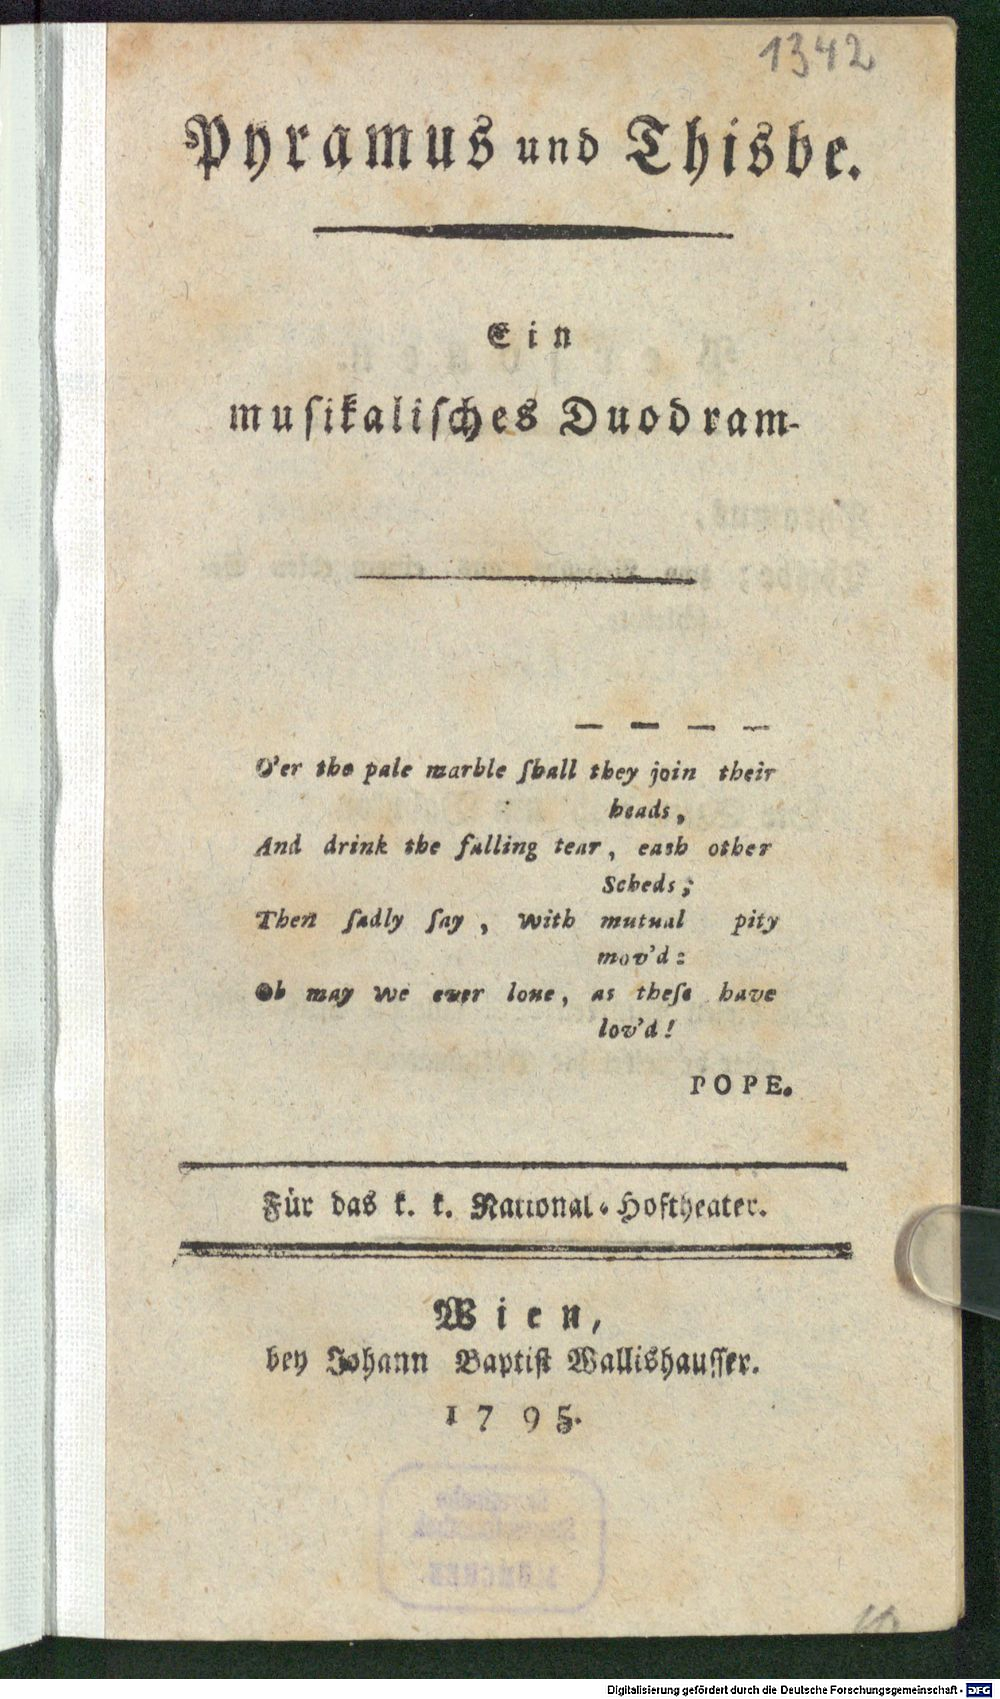 1342
Pyramus und Thisbe.
Ein
muſikaliſches Duodram.
— — — —
O'er the pale marble ſhall they join their
heads,
And drink the falling tear, each other
Scheds;
Then ſadly ſay, with mutual pity
mov'd:
Oh may we ever loue, as theſe have
lov'd!
POPE.
Für das k. k. National-Hoftheater.
Wien,
bey Johann Baptiſt Wallishauſſer.
1795.
Digitalisierung gefördert durch die Deutsche Forschungsgemeinschaft - DFG